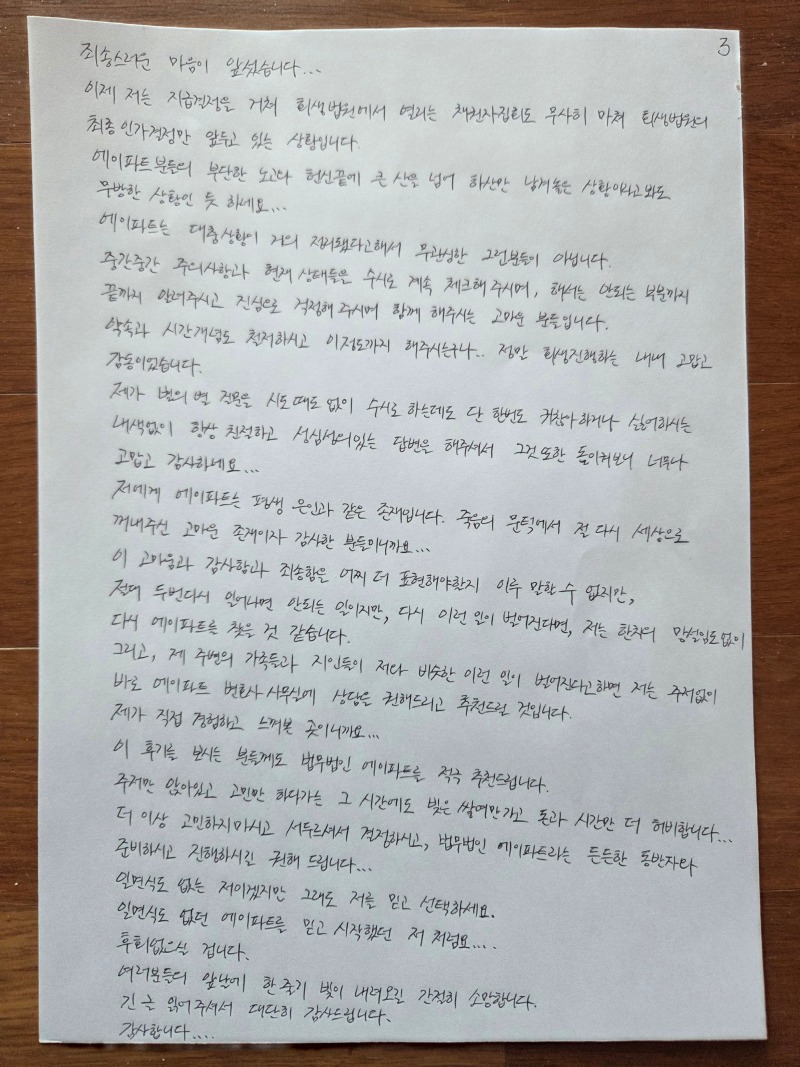 3
죄송스러운 마음이 앞섰습니다...
이제 저는 지급결정을 거쳐 회생법원에서 열리는 채권자집회도 무사히 마쳐 회생법원의
최종인가결정만 앞두고 있는 상황입니다.
에이파트분들의 부단한 노고와 헌신끝에 큰 산을 넘어 하산만 남겨놓은 상황이라고 봐도
무방한 상황인 듯 하네요...
에이파트는 대충상황이 거의 정리됐다고해서 무관심한 그런분들이 아닙니다.
중간중간 주의사항과 현재 상태들을 수시로 계속 체크해주시며, 해서는 안되는 부분까지
끝까지 알려주시고 진심으로 걱정해주시며 함께 해주시는 고마운 분들입니다.
약속과 시간개념도 철저하시고 이정도까지 해주시는구나.. 정말 회생진행하는 내내 고맙고
감동이었습니다.
제가 별의 별 질문을 시도때도 없이 수시로 하는데도 단 한번도 귀찮아하거나 싫어하시는
내색없이 항상 친절하고 성심성의있는 답변을 해주셔서 그것 또한 돌이켜보니 너무나
고맙고 감사하네요...
저에게 에이파트는 평생 은인과 같은 존재입니다. 죽음의 문턱에서 절 다시 세상으로
꺼내주신 고마운 존재이자 감사한 분들이니까요...
이 고마움과 감사함과 죄송함은 어찌 더 표현해야할지 이루 말할 수 없지만,
절대 두번다시 일어나면 안되는 일이지만, 다시 이런 일이 벌어진다면, 저는 한치의 망설임도없이
다시 에이파트를 찾을 것 같습니다.
그리고, 제 주변의 가족들과 지인들이 저와 비슷한 이런 일이 벌어진다고하면 저는 주저없이
바로 에이파트 변호사 사무실에 상담을 권해드리고 추천드릴 것입니다.
제가 직접 경험하고 느껴본 곳이니까요...
이 후기를 보시는 분들께도 법무법인 에이파트를 적극 추천드립니다.
주저만 앉아있고 고민만 하다가는 그 시간에도 빚은 쌓여만가고 돈과 시간만 더 허비합니다...
더 이상 고민하지마시고 서두르셔서 결정하시고, 법무법인 에이파트라는 든든한 동반자와
준비하시고 진행하시길 권해 드립니다...
일면식도 없는 저이겠지만 그래도 저를 믿고 선택하세요.
일면식도 없던 에이파트를 믿고 시작했던 저 처럼요....
후회없으실 겁니다.
여러분들의 앞날에 한 줄기 빛이 내려오길 간절히 소망합니다.
긴 글 읽어주셔서 대단히 감사드립니다.
감사합니다....